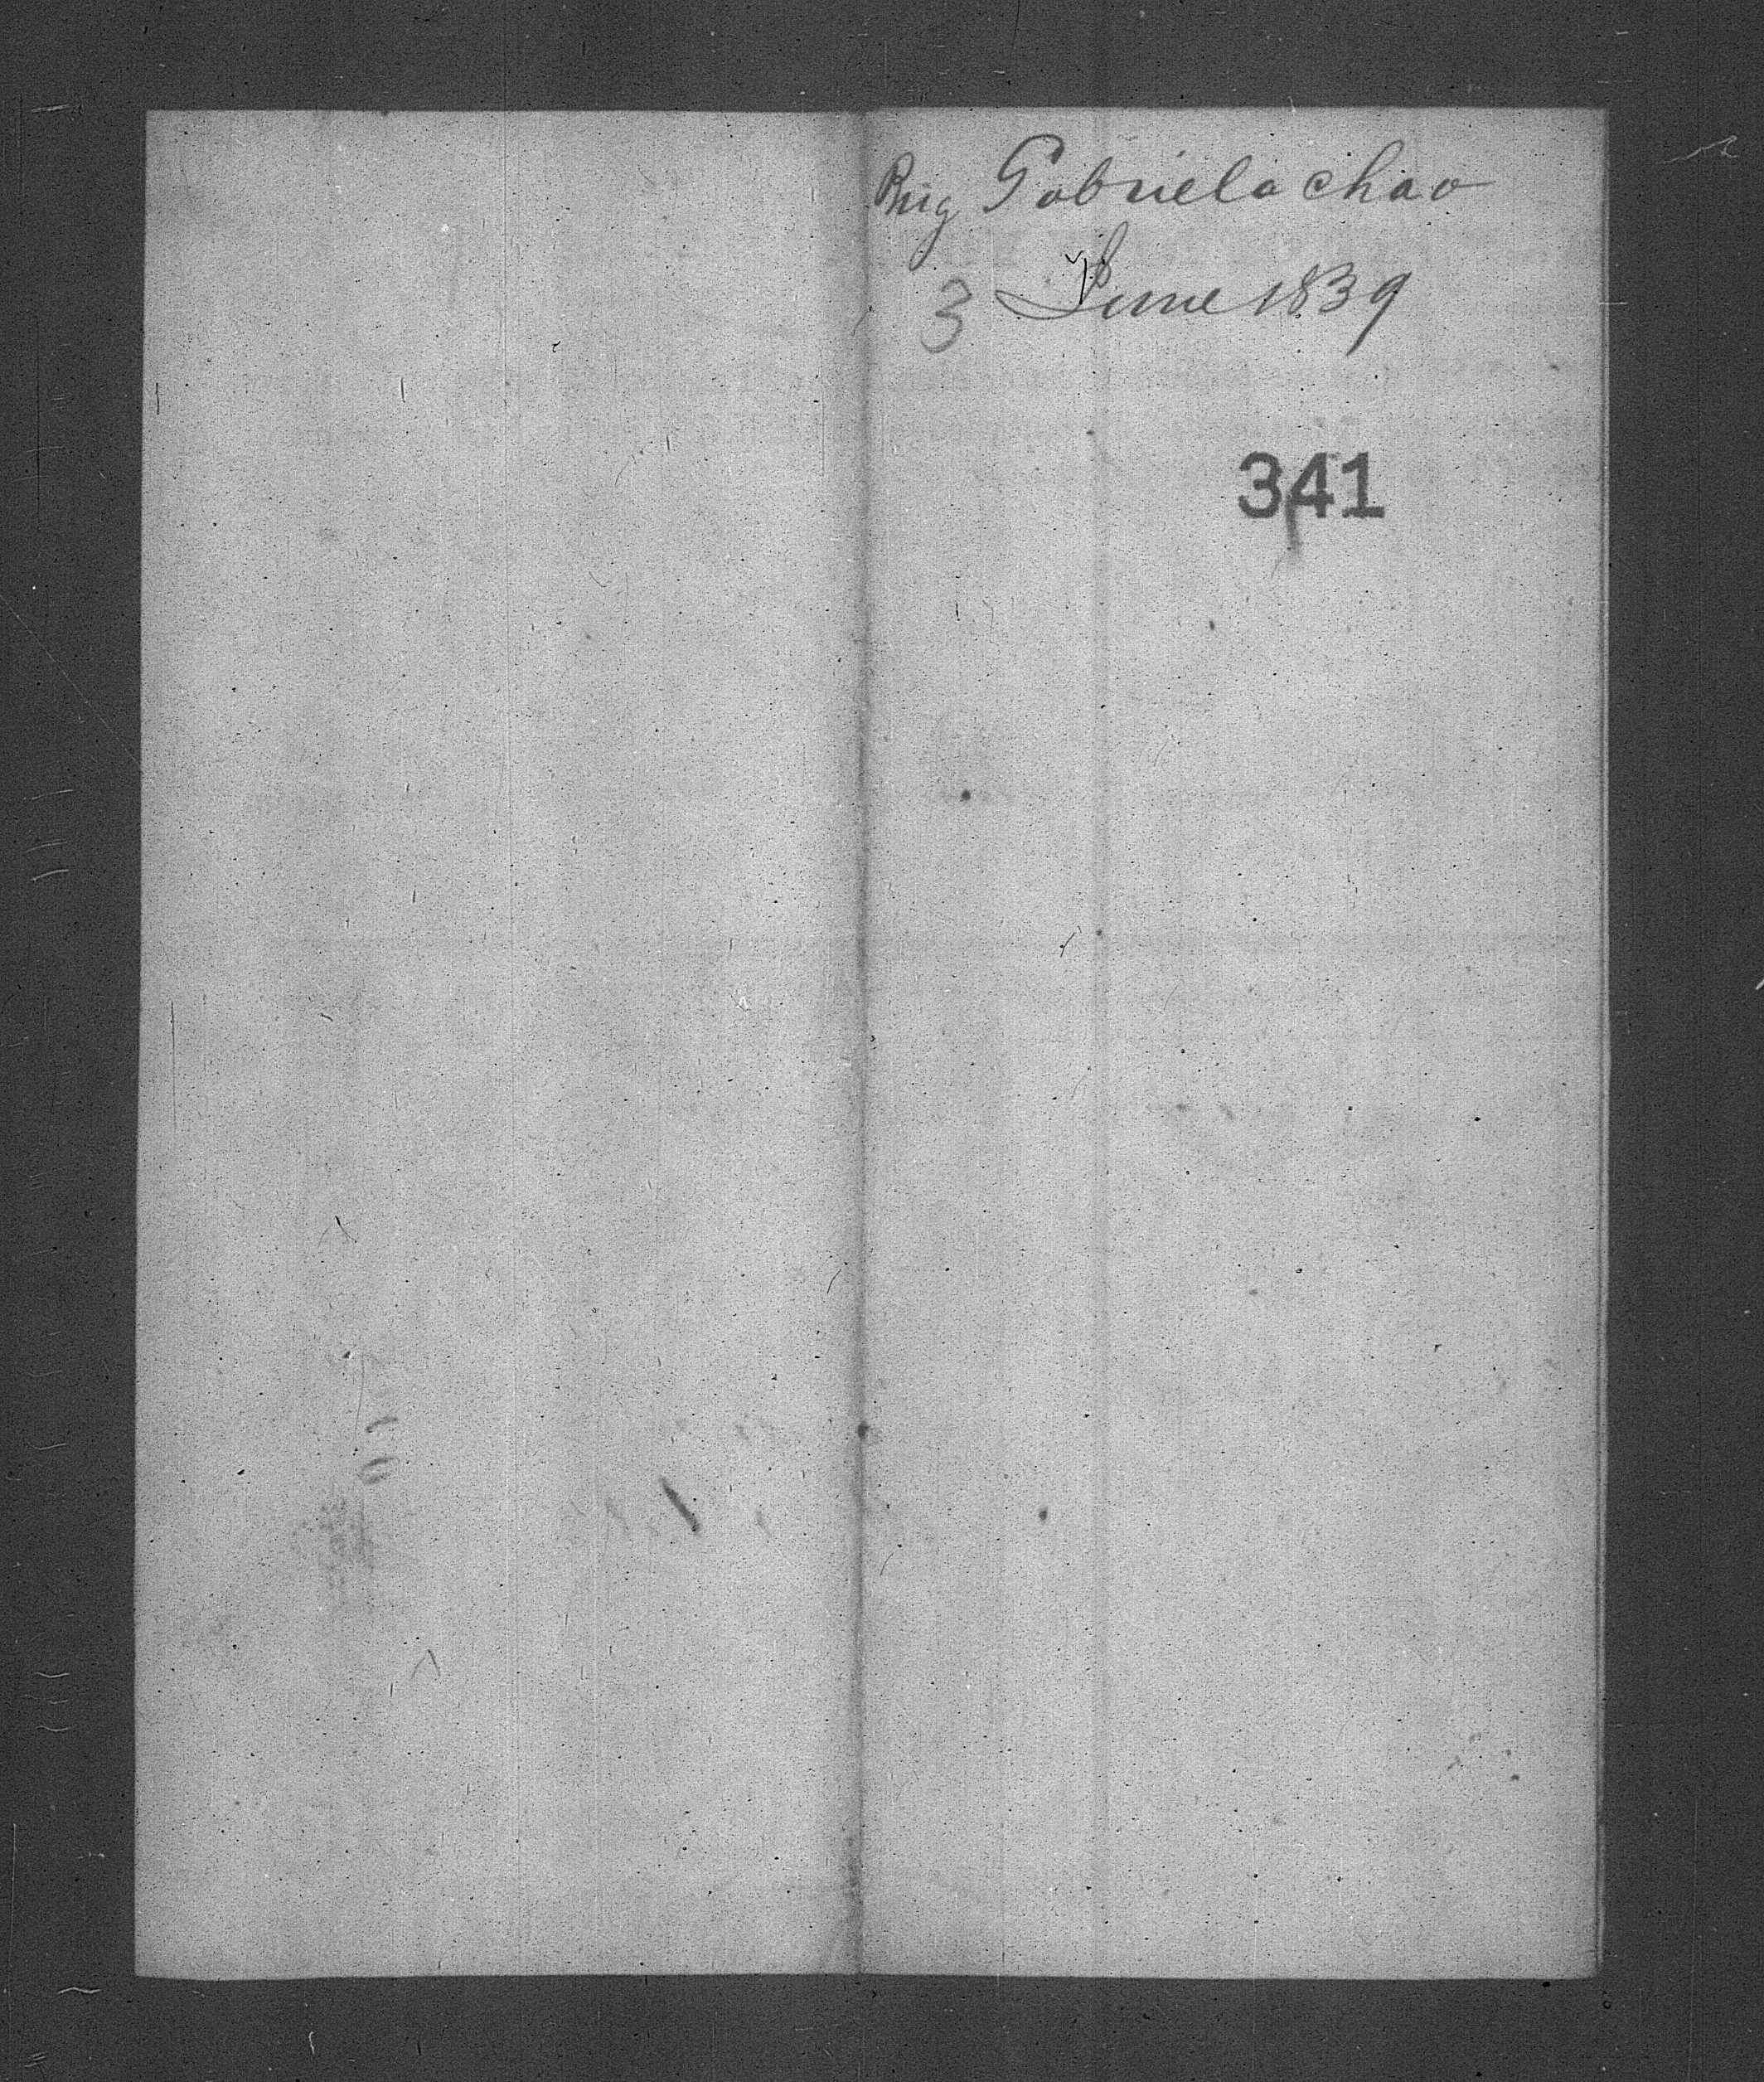 Brig Gabriela chao
3 June 1839
341